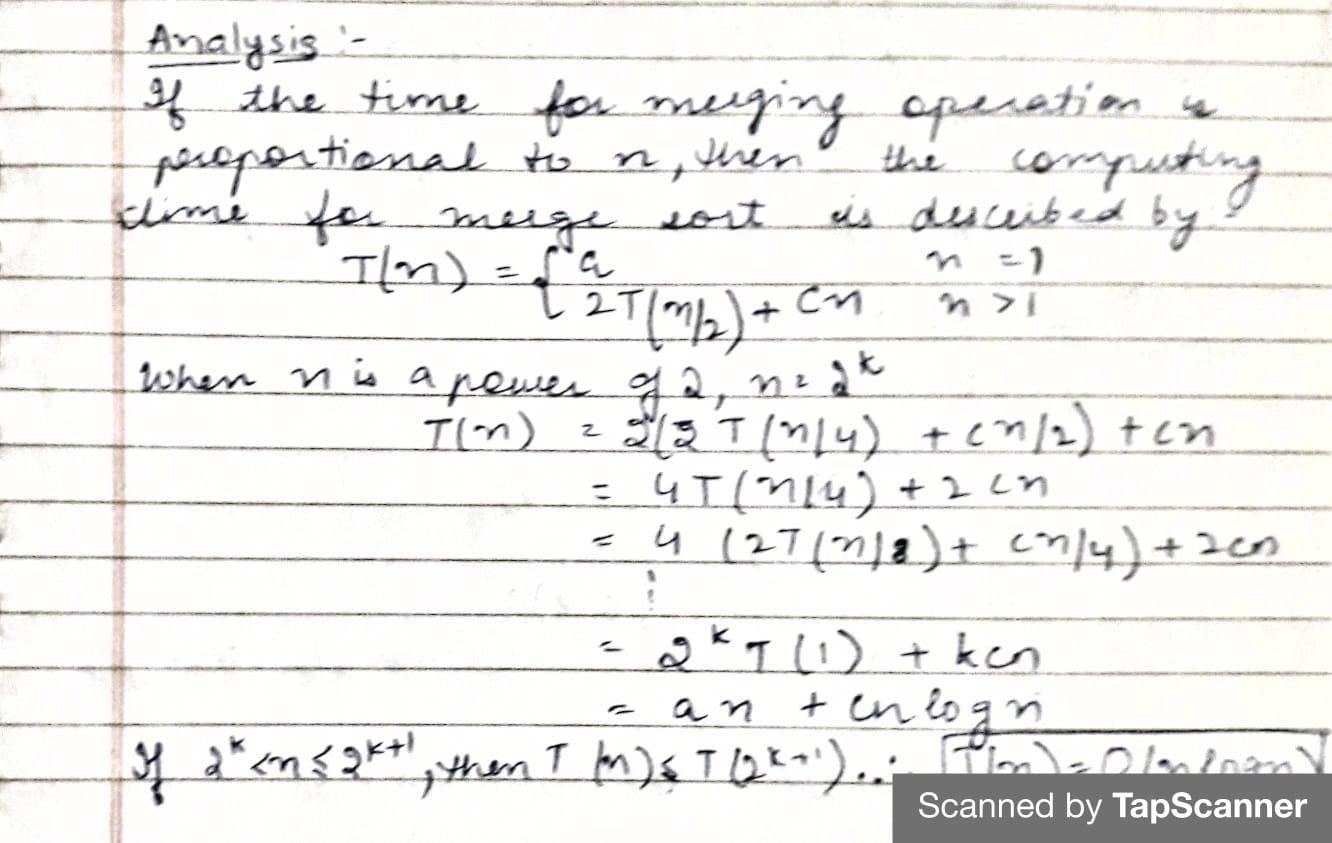 Analysis :-
If the time for merging operation is
proportional to n, then the computing
time for merge sort is described by
T(n) = { a n = 1
2T(n/2) + cn n > 1
When n is a power of 2, n = 2^k
T(n) = 2(2T(n/4) + cn/2) + cn
= 4T(n/4) + 2cn
= 4 (2T(n/8) + cn/4) + 2cn
⋮
= 2^k T(1) + kcn
= an + cn log n
If 2^k < n ≤ 2^k+1, then T(n) ≤ T(2^k+1). ∴ T(n) = O(n log n)
Scanned by TapScanner